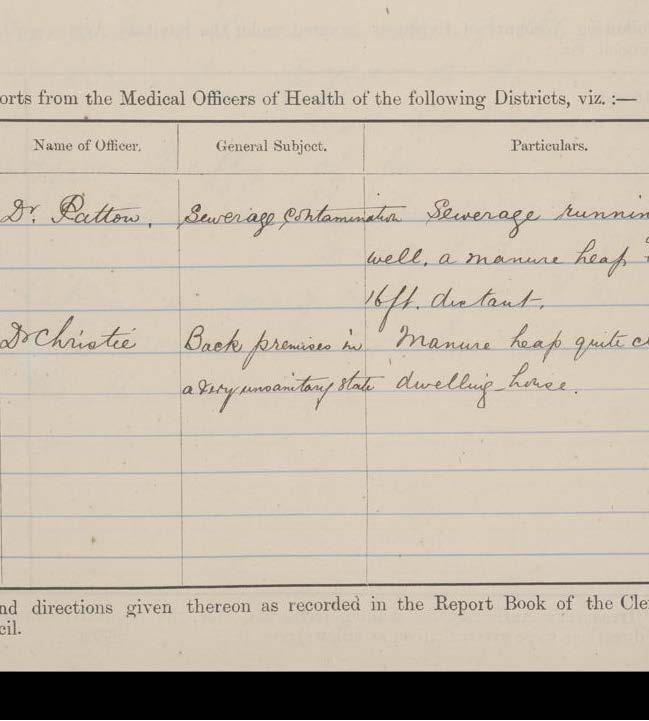 orts from the Medical Officers of Health of the following Districts, viz. :—
Name of Officer. General Subject. Particulars.
Dr. Pattow. Sewerage Contamination Sewerage runnin
well, a manure heap
16 ft. distant.
Dr Christie Back premises in Manure heap quite c
a very unsanitary state dwelling-house.
nd directions given thereon as recorded in the Report Book of the Cle
cil.